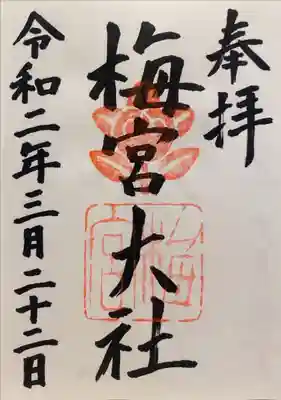 奉拝
梅宮大社
令和二年三月二十二日
梅宮